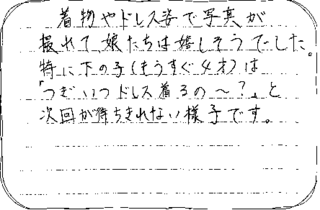 着物やドレス姿で写真が
撮れて娘たちは嬉しそうでした。
特に下の子(もうすぐ4才)は
「つぎいつドレス着るの〜?」と
次回が待ちきれない様子です。